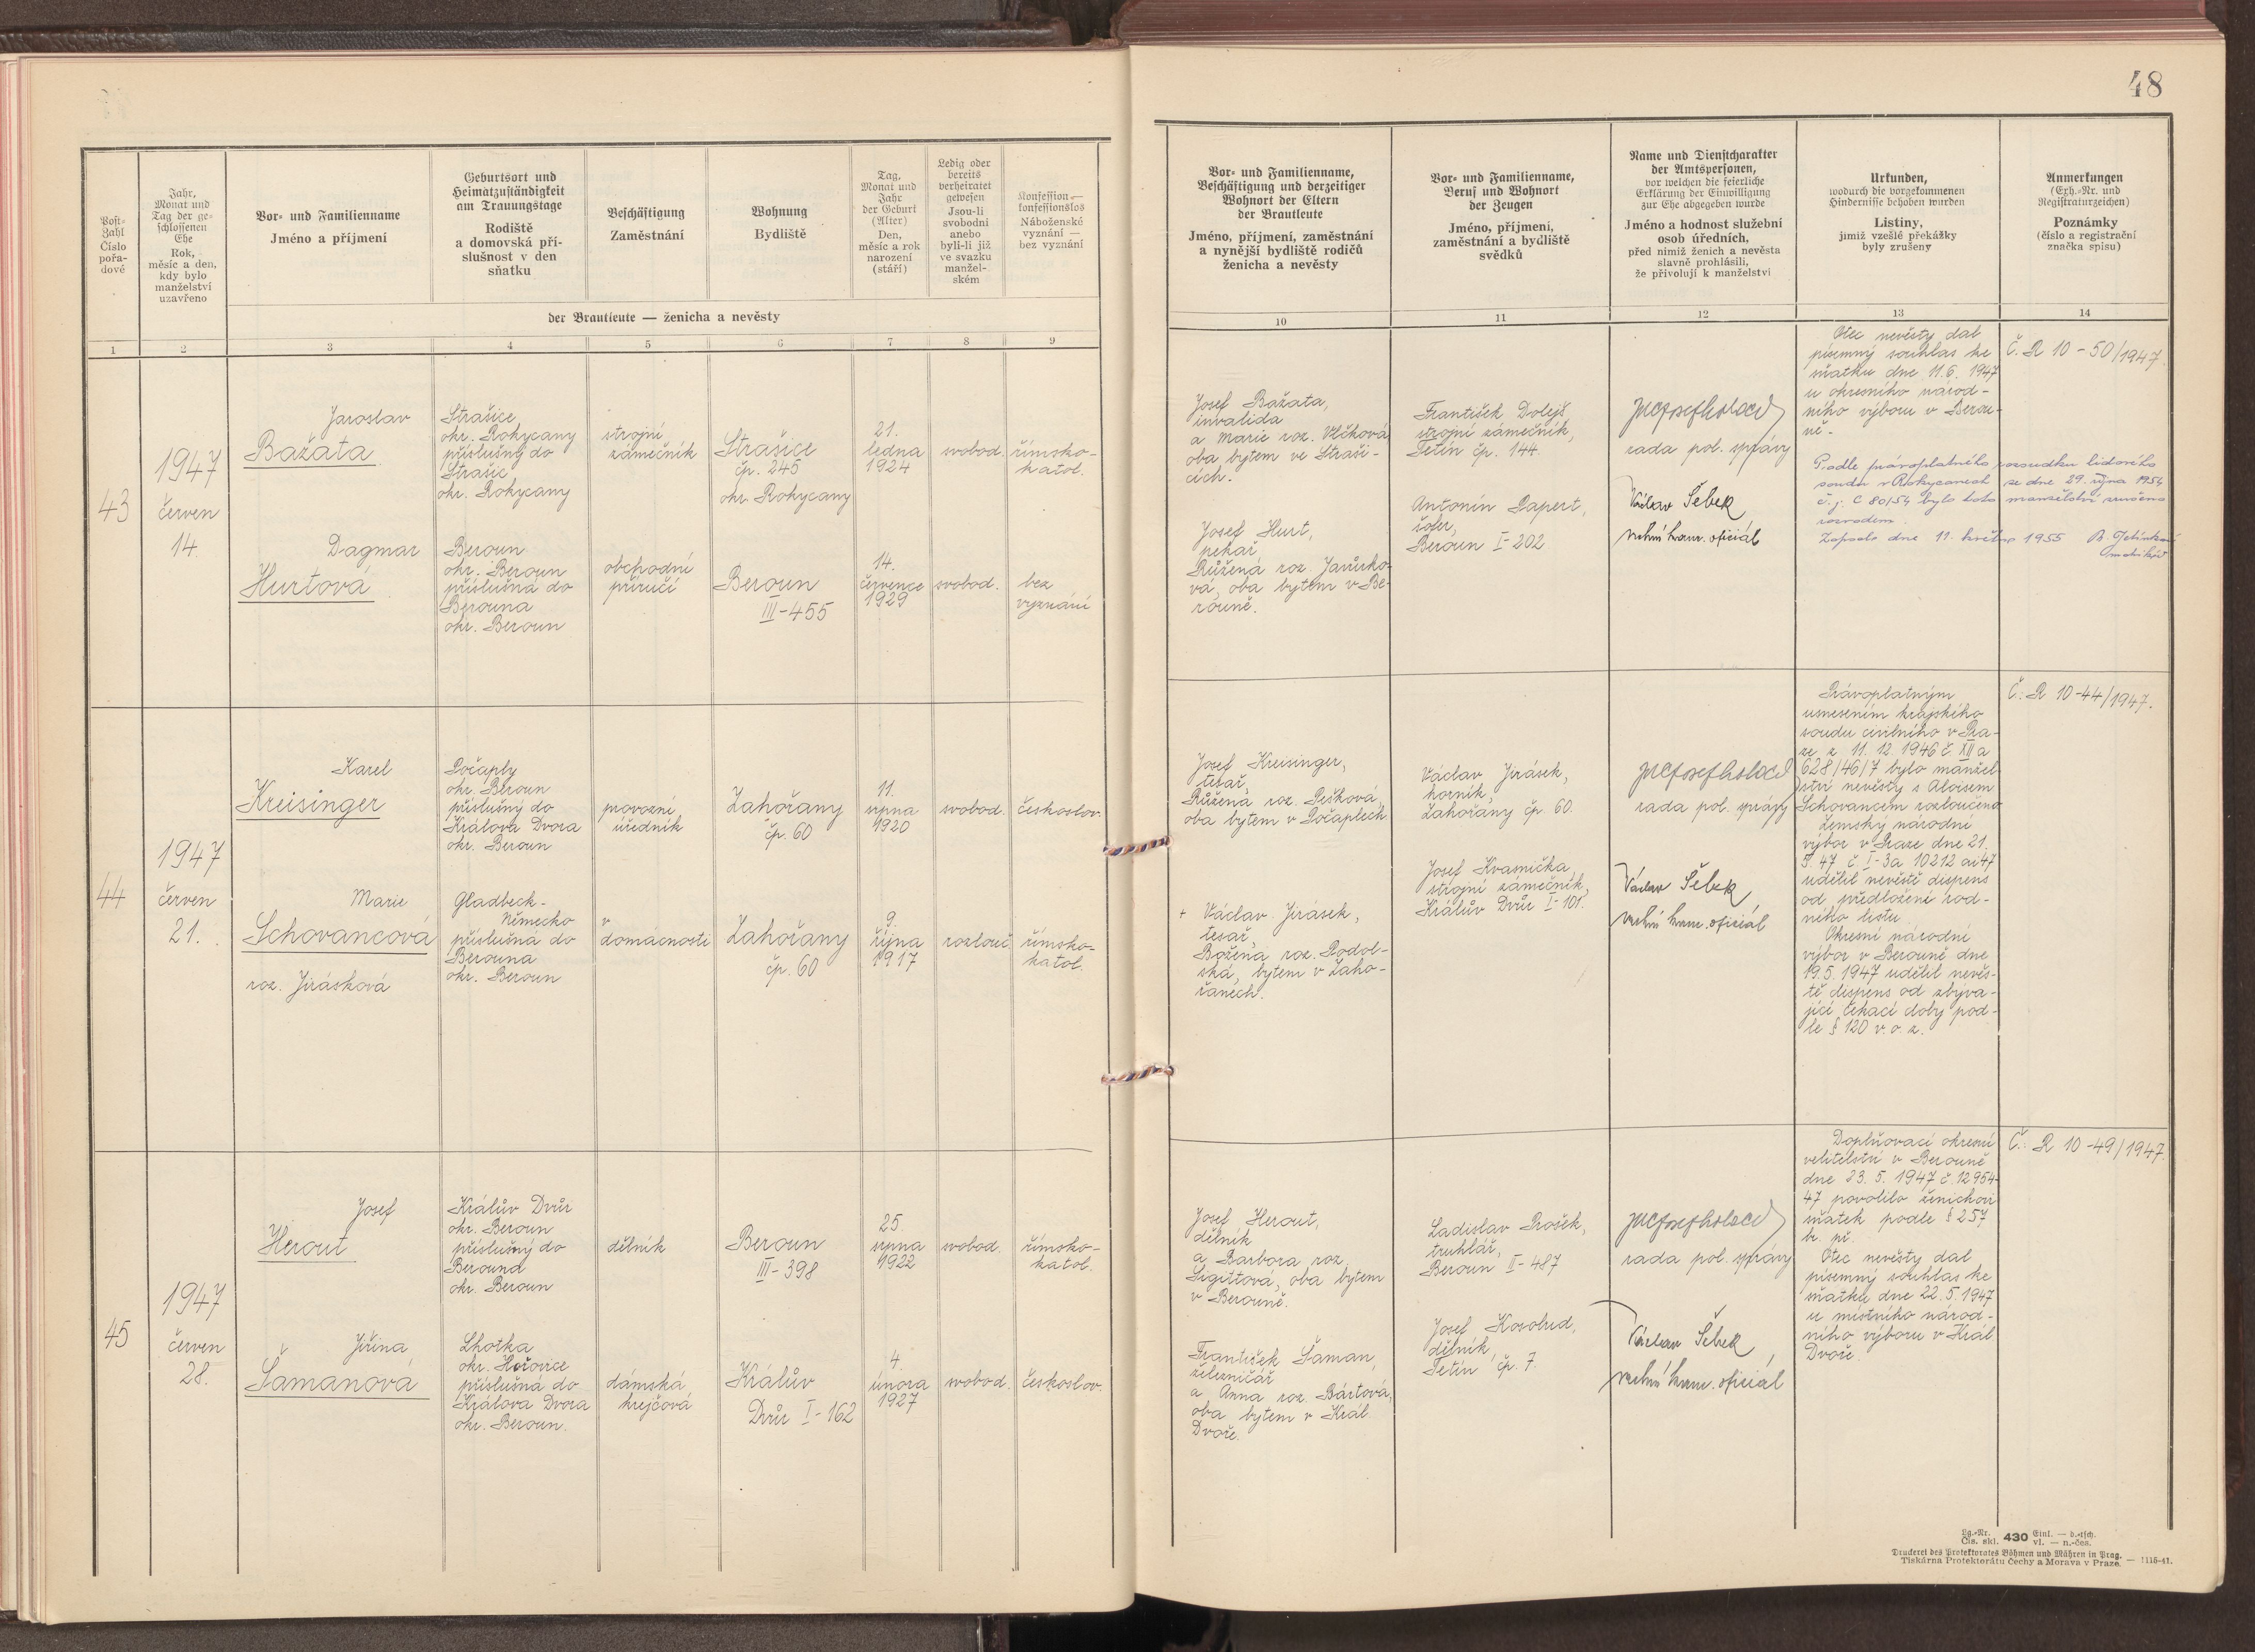 48
Post-
Zahl
Číslo
pořa-
dové
Jahr,
Monat und
Tag der ge-
schlossenen
Ehe
Rok,
měsíc a den,
kdy bylo
manželství
uzavřeno
Vor- und Familienname
Jméno a příjmení
Geburtsort und
Heimatzuständigkeit
am Trauungstage
Rodiště
a domovská pří-
slušnost v den
sňatku
Beschäftigung
Zaměstnání
Wohnung
Bydliště
Tag,
Monat und
Jahr
der Geburt
(Alter)
Den,
měsíc a rok
narození
(stáří)
Ledig oder
bereits
verheiratet
gewesen
Jsou-li
svobodni
anebo
byli-li již
ve svazku
manžel-
ském
Konfession —
konfessionslos
Náboženské
vyznání —
bez vyznání
der Brautleute — ženicha a nevěsty
Vor- und Familienname,
Beschäftigung und derzeitiger
Wohnort der Eltern
der Brautleute
Jméno, příjmení, zaměstnání
a nynější bydliště rodičů
ženicha a nevěsty
Vor- und Familienname,
Beruf und Wohnort
der Zeugen
Jméno, příjmení,
zaměstnání a bydliště
svědků
Name und Dienstcharakter
der Amtspersonen,
vor welchen die feierliche
Erklärung der Einwilligung
zur Ehe abgegeben wurde
Jméno a hodnost služební
osob úředních,
před nimiž ženich a nevěsta
slavně prohlásili,
že přivolují k manželství
Urkunden,
wodurch die vorgekommenen
Hindernisse behoben wurden
Listiny,
jimiž vzešlé překážky
byly zrušeny
Anmerkungen
(Exh.-Nr. und
Registraturzeichen)
Poznámky
(číslo a registrační
značka spisu)
1 2 3 4 5 6 7 8 9 10 11 12 13 14
43
1947
červen
14.
Jaroslav
Bažata
Strašice
okr. Rokycany
příslušný do
Strašic
okr. Rokycany
strojní
zámečník
Strašice
čp. 245
okr. Rokycany
21.
ledna
1924
svobod.
římsko-
katol.
Dagmar
Hurtová
Beroun
okr. Beroun
příslušná do
Berouna
okr. Beroun
obchodní
příručí
Beroun
III-455
14.
července
1929
svobod.
bez
vyznání
Josef Bažata,
invalida
a Marie roz. Vlčková
oba bytem ve Straši-
cích.
Josef Hurt,
pekař,
Růžena roz. Javůrko-
vá, oba bytem v Be-
rouně.
František Dolejš,
strojní zámečník,
Tetín čp. 144.
Antonín Papert,
šofer,
Beroun I-202
rada pol. správy
Václav Šebek
vrchní kanc. oficiál
Otec nevěsty dal
písemný souhlas ke
sňatku dne 11.6. 1947
u okresního národ-
ního výboru v Berou-
ně.
Č. R 10-50/1947.
Podle právoplatného rozsudku lidového
soudu v Rokycanech ze dne 29. října 1954
č.j. C 80/54 bylo toto manželství zrušeno
rozvodem.
Zapsáno dne 11. května 1955
matrikář
44
1947
červen
21.
Karel
Kreisinger
Počaply
okr. Beroun
příslušný do
Králova Dvora
okr. Beroun
provozní
úředník
Zahořany
čp. 60
11.
srpna
1920
svobod.
českoslov.
Marie
Schovancová
roz. Jirásková
Gladbeck-
Německo
příslušná do
Berouna
okr. Beroun
v
domácnosti
Zahořany
čp. 60
9.
října
1917
rozlouč.
římsko-
katol.
Josef Kreisinger,
tesař,
Růžena roz. Pešková,
oba bytem v Počaplech
+ Václav Jirásek,
tesař,
Božena roz. Podol-
ská, bytem v Zaho-
řanech.
Václav Jirásek,
horník,
Zahořany čp. 60.
Josef Kvasnička,
strojní zámečník,
Králův Dvůr I-101.
rada pol. správy
Václav Šebek
vrchní kanc. oficiál
Právoplatným
usnesením krajského
soudu civilního v Pra-
ze z 11. 12. 1946 č. XII a
628/46/7 bylo manžel-
ství nevěsty s Aloisem
Schovancem rozloučeno
Zemský národní
výbor v Praze dne 21.
5. 47 č. I-3a 10212 ai 47
udělil nevěstě dispens
od předložení rod-
ného listu.
Okresní národní
výbor v Berouně dne
19.5. 1947 udělil nevěs-
tě dispens od zbýva-
jící čekací doby pod-
le § 120 v. o. z.
Č. R 10-44/1947.
45
1947
červen
28.
Josef
Herout
Králův Dvůr
okr. Beroun
příslušný do
Berouna
okr. Beroun
dělník
Beroun
III-398
25.
srpna
1922
svobod.
římsko-
katol.
Jiřina
Šamanová
Lhotka
okr. Hořovice
příslušná do
Králova Dvora
okr. Beroun.
dámská
krejčová
Králův
Dvůr I-162
4.
února
1927
svobod.
českoslov.
Josef Herout,
dělník
a Barbora roz.
oba bytem
v Berouně.
František Šaman,
železničář
a Anna roz. Bártová,
oba bytem v Král.
Dvoře.
Ladislav Prošek,
truhlář,
Beroun II-487
Josef Kosolud,
dělník,
Tetín čp. 7.
rada pol. správy
Václav Šebek,
vrchní kanc. oficiál
Doplňovací okresní
velitelství v Berouně
dne 23. 5. 1947 č. 12954-
47 povolilo ženichovi
sňatek podle § 257
br. př.
Otec nevěsty dal
písemný souhlas ke
sňatku dne 22.5. 1947
u místního národ-
ního výboru v Král.
Dvoře.
Č.: R 10-49/1947.
Lg.-Nr. 430 Einl. — d.-tsch.
Čís. skl. vl. — n.-čes.
Druckerei des Protektorates Böhmen und Mähren in Prag.
Tiskárna Protektorátu Čechy a Morava v Praze. — 1115-41.